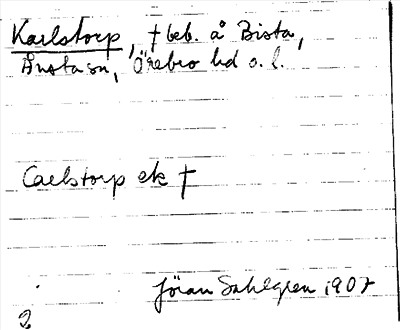 Karlstorp, † beb. å Bista,
Ånsta sn, Örebro hd o. l.
Carlstorp ek †
Jöran Sahlgren 1907
2